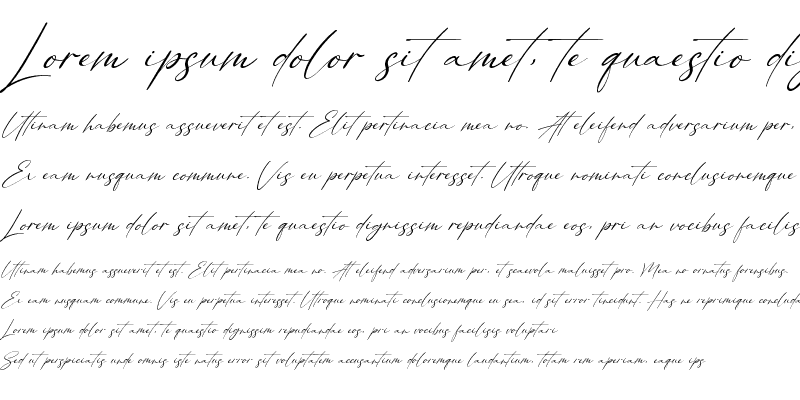 Lorem ipsum dolor sit amet, te quaestio dig
Utinam habemus assueverit et est. Elit pertinacia mea no. At eleifend adversarium per,
Ei eam nusquam commune. Vis eu perpetua interesset. Utroque nominati conclusionemque
Lorem ipsum dolor sit amet, te quaestio dignissim repudiandae eos, pri an vocibus facilis
Utinam habemus assueverit et est. Elit pertinacia mea no. At eleifend adversarium per, et scaevola maluisset pro. Mea no ornatus forensibus.
Ei eam nusquam commune. Vis eu perpetua interesset. Utroque nominati conclusionemque eu sea, id sit error tincidunt. Has ne reprimique concluda
Lorem ipsum dolor sit amet, te quaestio dignissim repudiandae eos, pri an vocibus facilisis voluptari
Sed ut perspiciatis unde omnis iste natus error sit voluptatem accusantium doloremque laudantium, totam rem aperiam, eaque ips